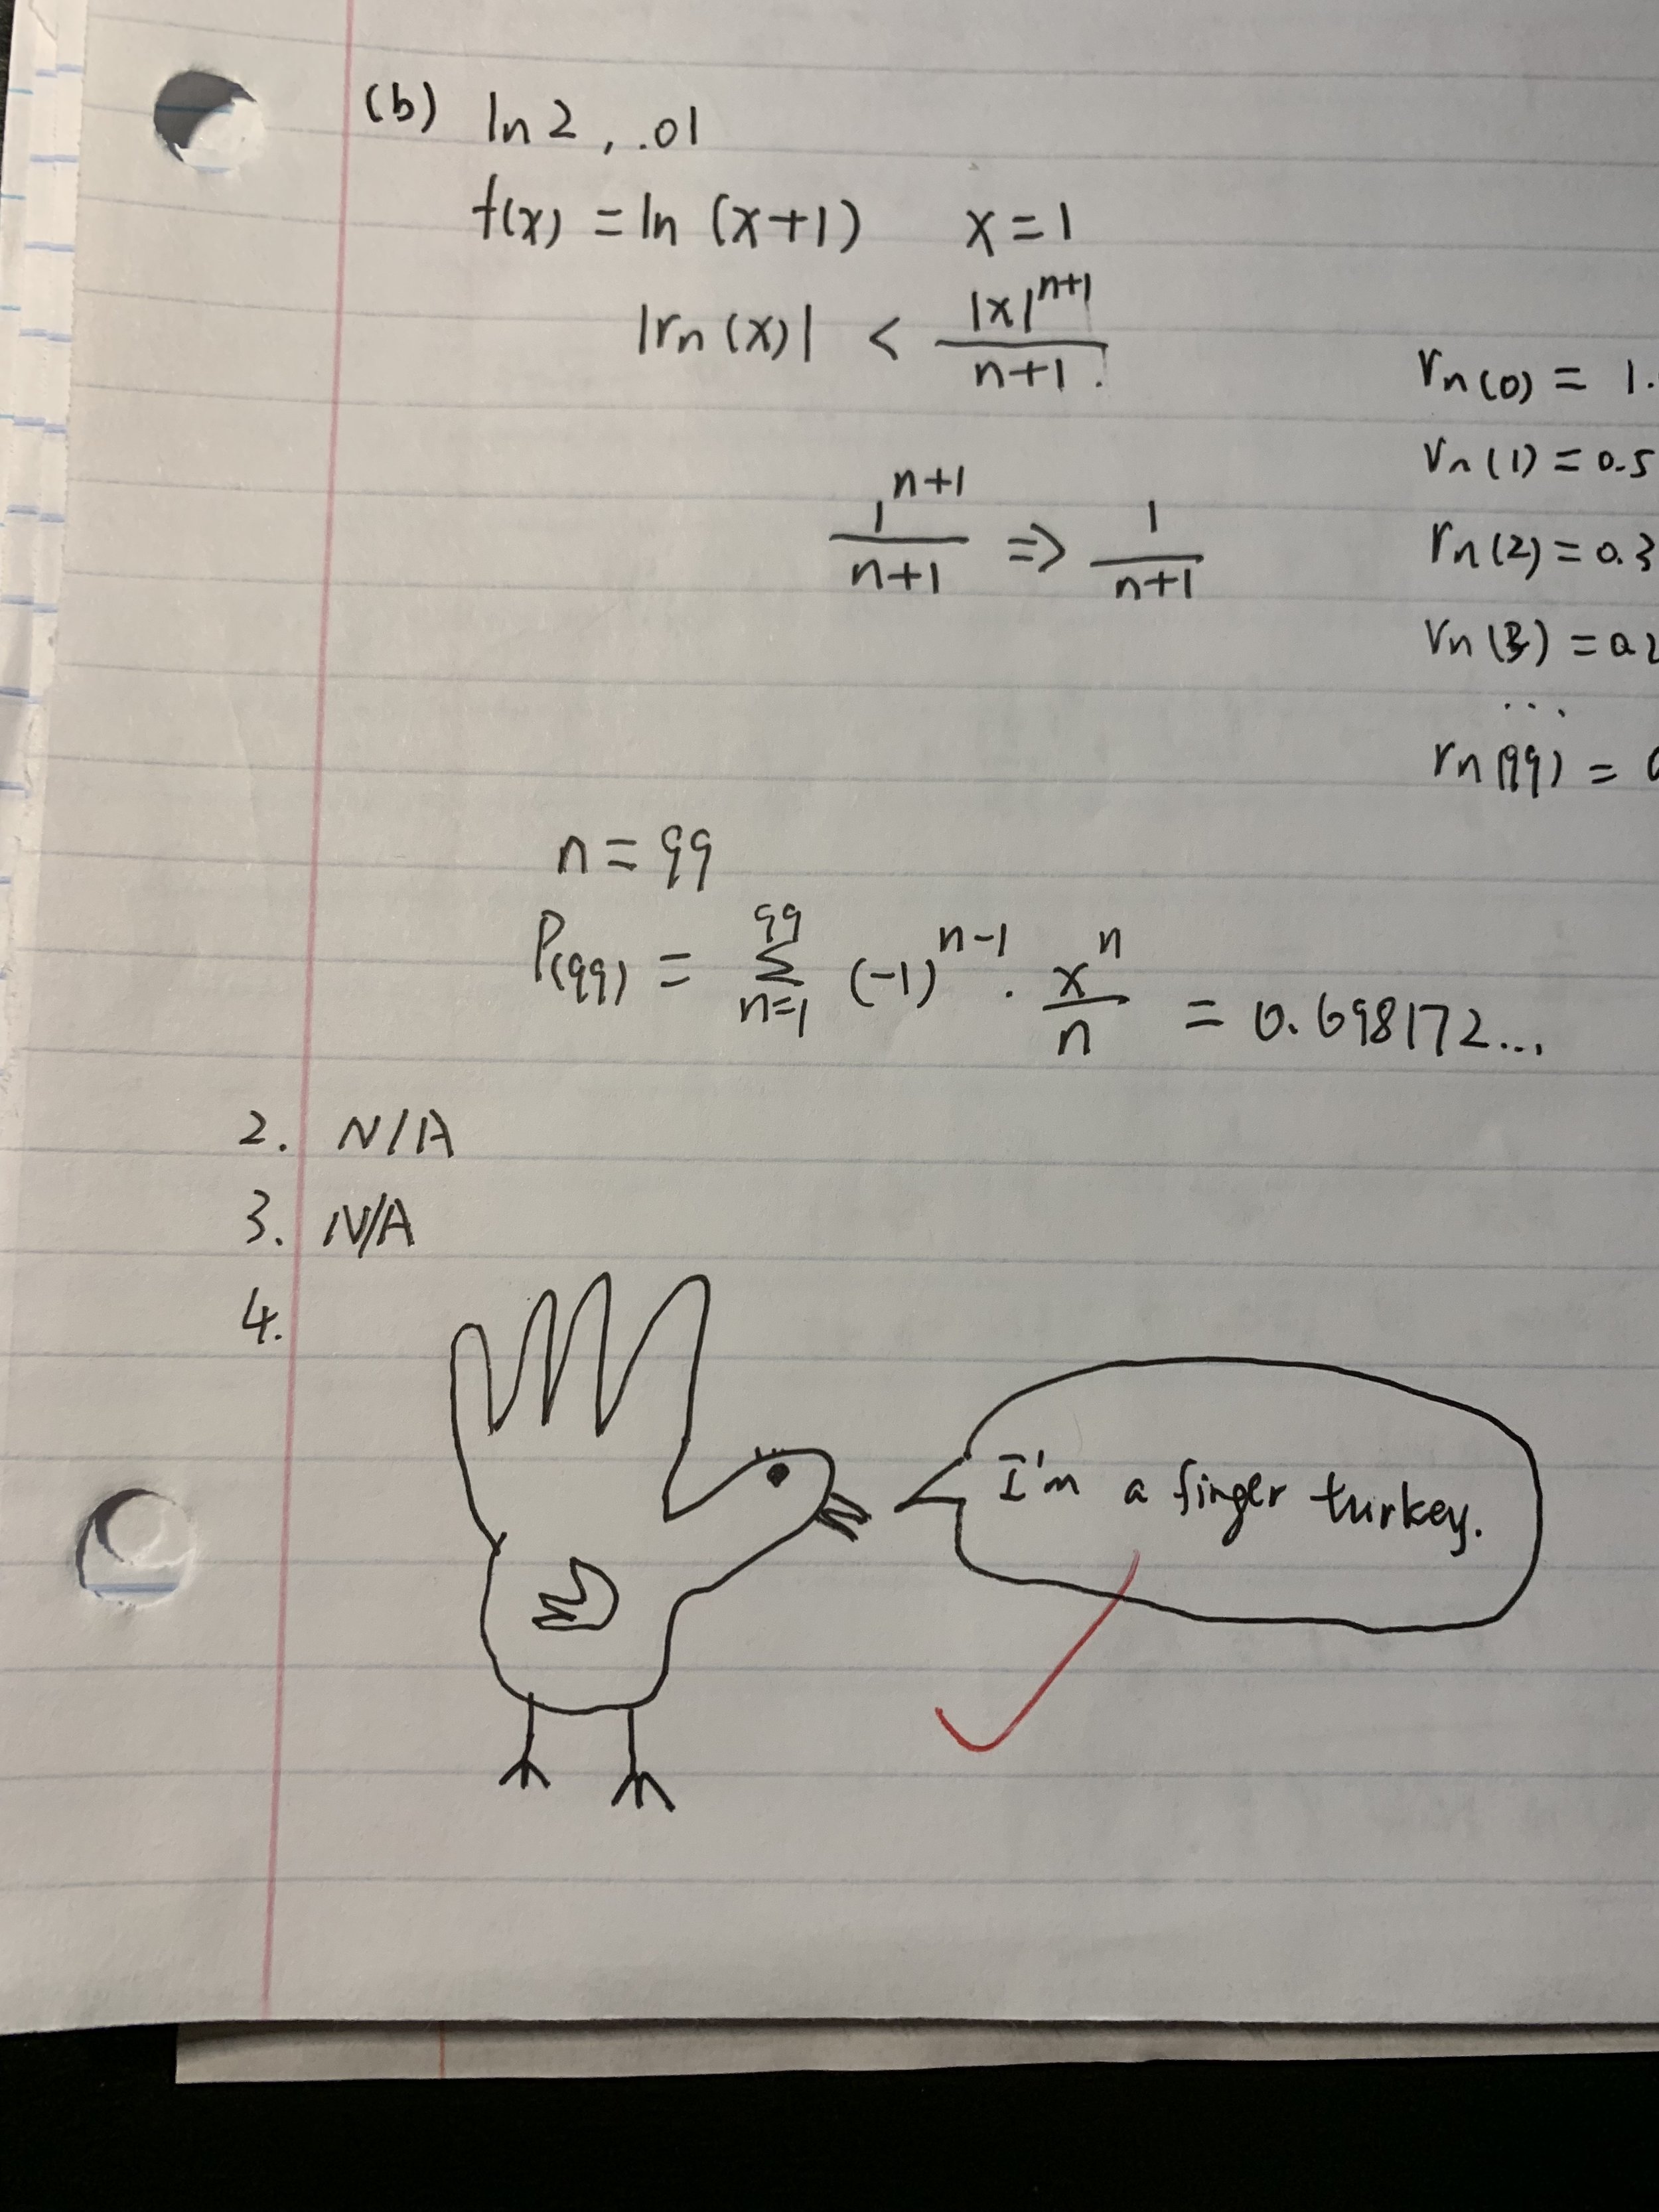 (b) ln 2, .01
f(x) = ln (x+1) x = 1
|rn (x)| < |x|^n+1 / n+1
1^n+1 / n+1 => 1 / n+1
rn(0) = 1.
rn(1) = 0.5
rn(2) = 0.3
rn(3) = 0.2
...
rn(99) = 0
n = 99
P(99) = 99 Σ n=1 (-1)^n-1 · x^n / n = 0.698172...
2. N/A
3. N/A
4.
I'm a finger turkey.